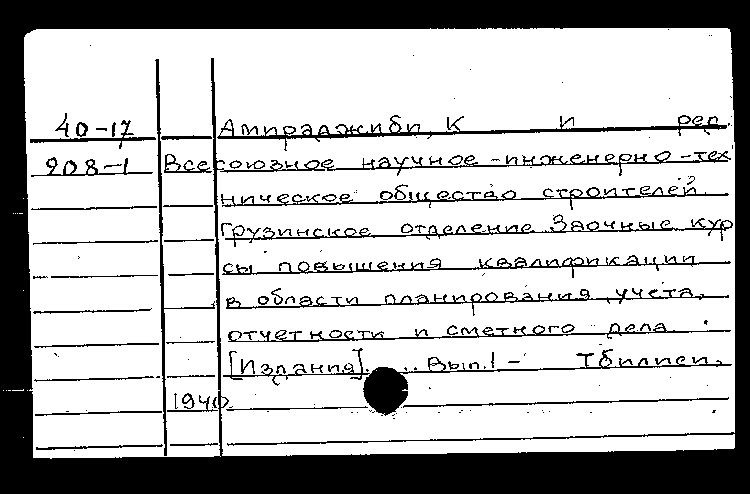 40-17 Амираджиби, К И ред.
908-1 Всесоюзное научное-инженерно-тех
ническое общество строителей.
Грузинское отделение Заочные кур
сы повышения квалификации
в области планирования, учета,
отчетности и сметного дела.
[Издания]. .. Вып.1- Тбилиси,
1940.